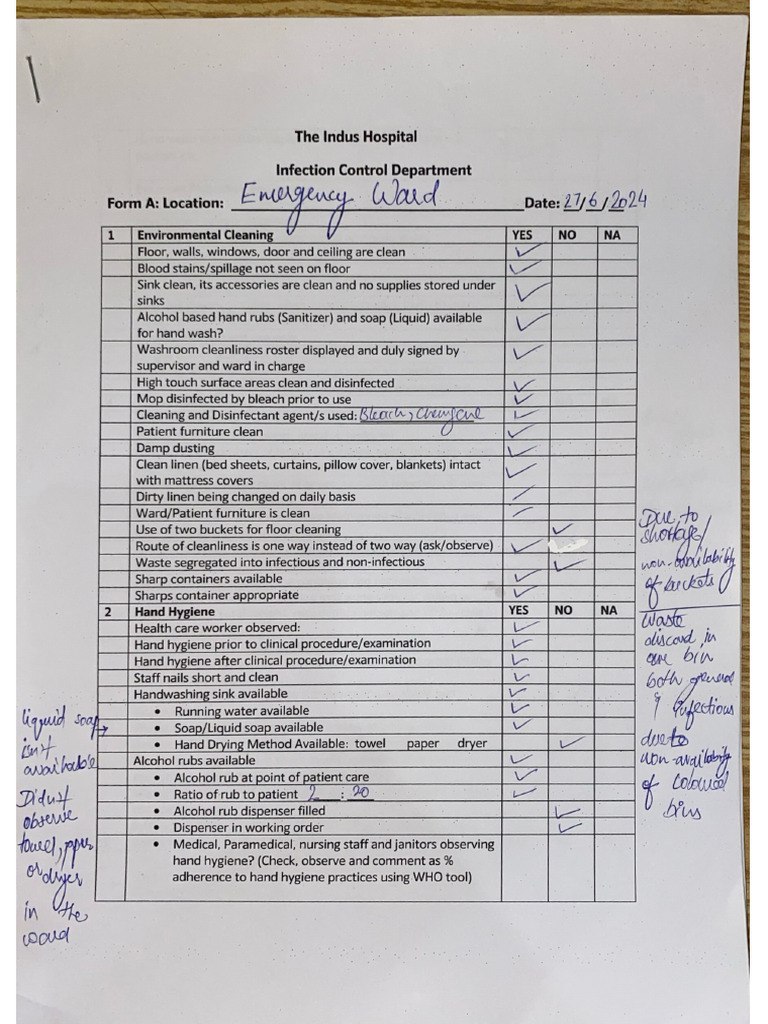 The Indus Hospital
Infection Control Department
Form A: Location: Emergency Ward Date: 27/6/2024
1 Environmental Cleaning YES NO NA
Floor, walls, windows, door and ceiling are clean ✓
Blood stains/spillage not seen on floor ✓
Sink clean, its accessories are clean and no supplies stored under
sinks ✓
Alcohol based hand rubs (Sanitizer) and soap (Liquid) available
for hand wash? ✓
Washroom cleanliness roster displayed and duly signed by
supervisor and ward in charge ✓
High touch surface areas clean and disinfected ✓
Mop disinfected by bleach prior to use ✓
Cleaning and Disinfectant agent/s used: Bleach, ✓
Patient furniture clean ✓
Damp dusting ✓
Clean linen (bed sheets, curtains, pillow cover, blankets) intact
with mattress covers ✓
Dirty linen being changed on daily basis ✓
Ward/Patient furniture is clean ✓
Use of two buckets for floor cleaning ✓
Route of cleanliness is one way instead of two way (ask/observe) ✓
Waste segregated into infectious and non-infectious ✓
Sharp containers available ✓
Sharps container appropriate ✓
2 Hand Hygiene YES NO NA
Health care worker observed: ✓
Hand hygiene prior to clinical procedure/examination ✓
Hand hygiene after clinical procedure/examination ✓
Staff nails short and clean ✓
Handwashing sink available ✓
• Running water available ✓
• Soap/Liquid soap available ✓
• Hand Drying Method Available: towel paper dryer ✓
Alcohol rubs available ✓
• Alcohol rub at point of patient care ✓
• Ratio of rub to patient 2 : 20 ✓
• Alcohol rub dispenser filled ✓
• Dispenser in working order ✓
• Medical, Paramedical, nursing staff and janitors observing
hand hygiene? (Check, observe and comment as %
adherence to hand hygiene practices using WHO tool)
Due to
shortage/
non-availability
of buckets
Waste
discard in
one bin
both general
& infectious
due to
non-availability
of coloured
bins
liquid soap
isn't
available
Didn't
observe
towel, paper
or dryer
in the
ward